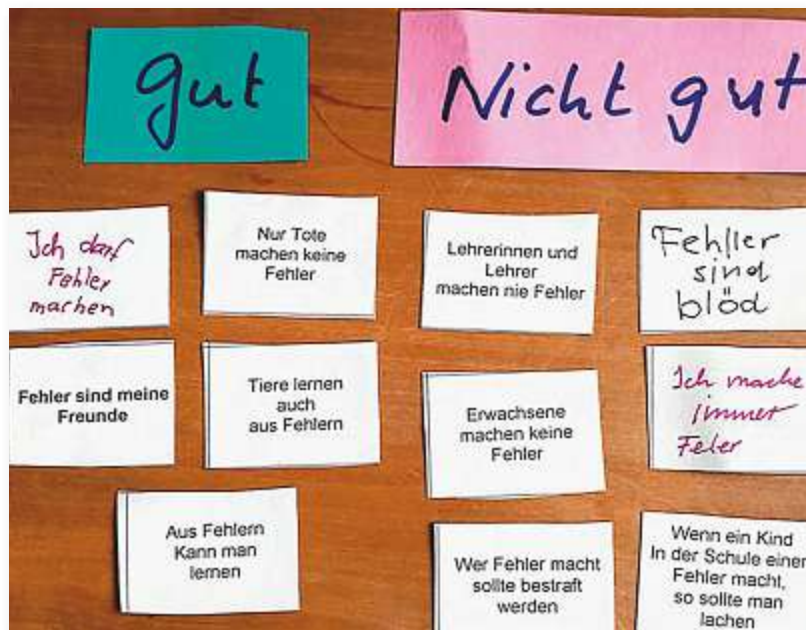 gut
Nicht gut
Ich darf
Fehler
machen
Nur Tote
machen keine
Fehler
Lehrerinnen und
Lehrer
machen nie Fehler
Fehller
sind
blöd
Fehler sind meine
Freunde
Tiere lernen
auch
aus Fehlern
Erwachsene
machen keine
Fehler
Ich mache
immer
Feler
Aus Fehlern
Kann man
lernen
Wer Fehler macht
sollte bestraft
werden
Wenn ein Kind
In der Schule einen
Fehler macht,
so sollte man
lachen